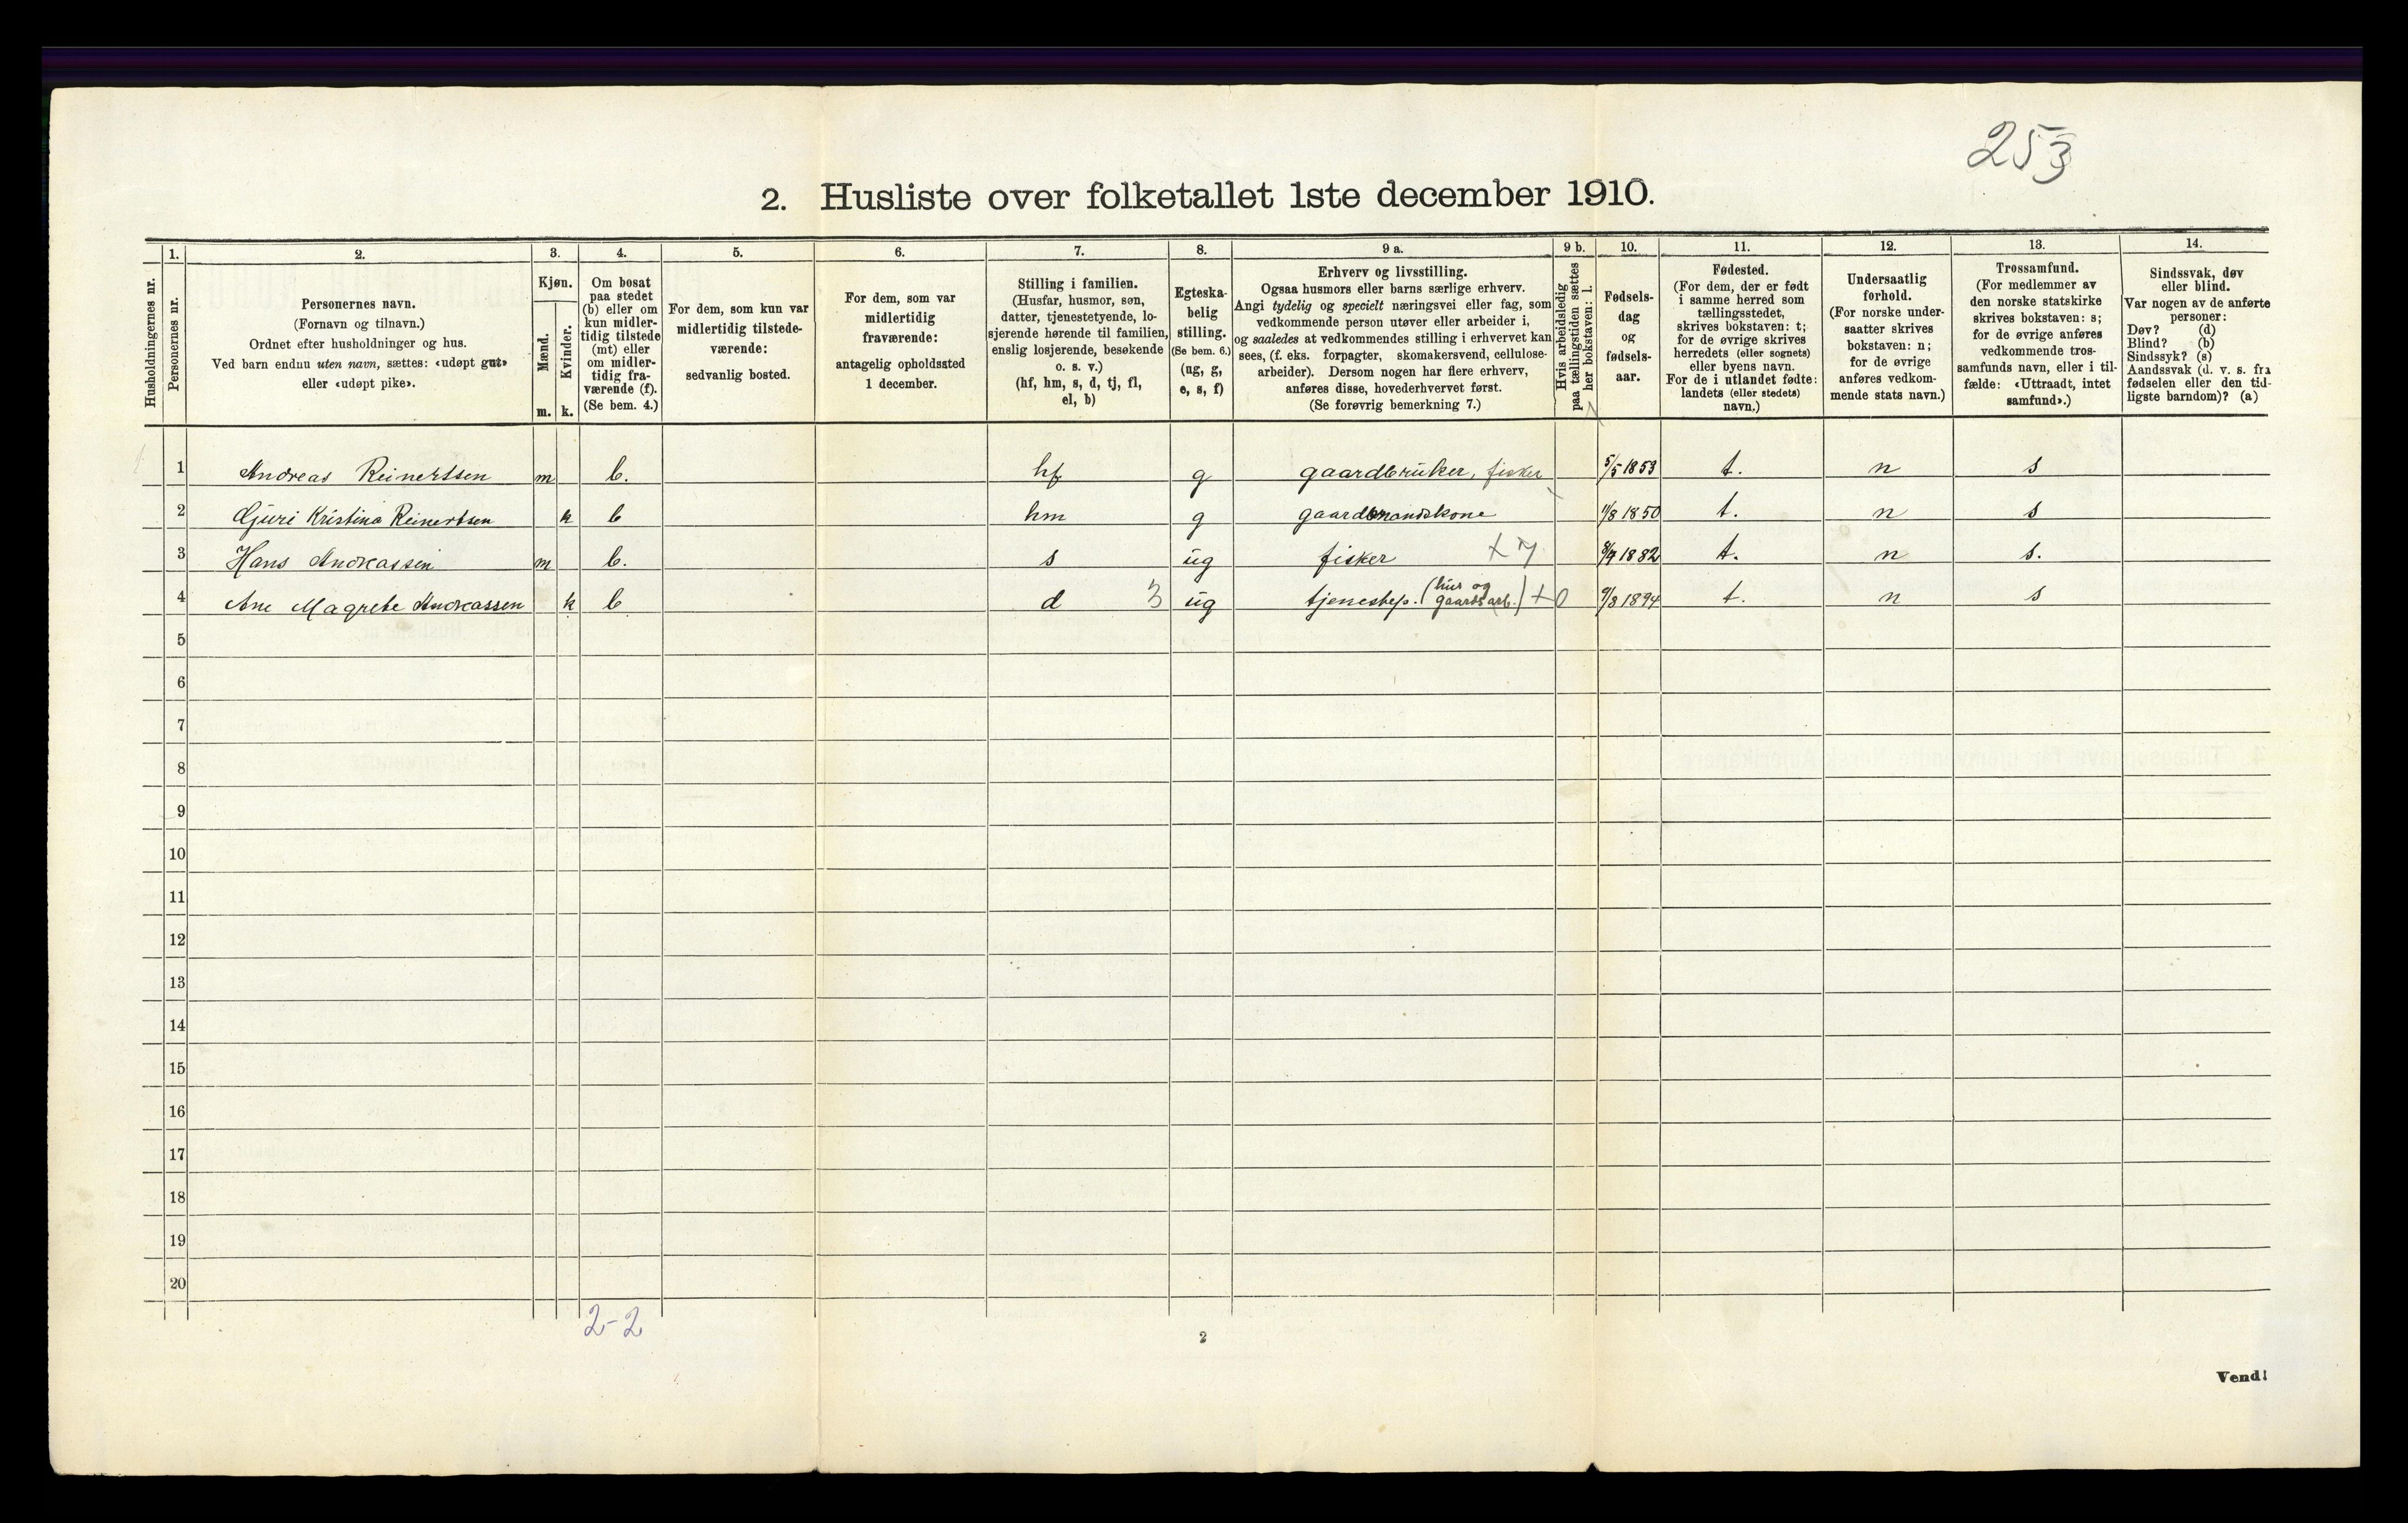 253
2. Husliste over folketallet 1ste december 1910.
Husholdningernes nr.
1.
Personernes nr.
2.
Personernes navn.
(Fornavn og tilnavn.)
Ordnet efter husholdninger og hus.
Ved barn endnu uten navn, sættes: «udøpt gut»
eller «udøpt pike».
3.
Kjøn.
Mænd.
Kvinder.
m. k.
4.
Om bosat
paa stedet
(b) eller om
kun midler-
tidig tilstede
(mt) eller
om midler-
tidig fra-
værende (f).
(Se bem. 4.)
5.
For dem, som kun var
midlertidig tilstede-
værende:
sedvanlig bosted.
6.
For dem, som var
midlertidig
fraværende:
antagelig opholdssted
1 december.
7.
Stilling i familien.
(Husfar, husmor, søn,
datter, tjenestetyende, lo-
sjerende hørende til familien,
enslig losjerende, besøkende
o. s. v.)
(hf, hm, s, d, tj, fl,
el, b)
8.
Egteska-
belig
stilling.
(Se bem. 6.)
(ug, g,
e, s, f)
9 a.
Erhverv og livsstilling.
Ogsaa husmors eller barns særlige erhverv.
Angi tydelig og specielt næringsvei eller fag, som
vedkommende person utøver eller arbeider i,
og saaledes at vedkommendes stilling i erhvervet kan
sees, (f. eks. forpagter, skomakersvend, cellulose-
arbeider). Dersom nogen har flere erhverv,
anføres disse, hovederhvervet først.
(Se forøvrig bemerkning 7.)
9 b.
Hvis arbeidsledig
paa tællingstiden sættes
her bokstaven: l.
10.
Fødsels-
dag
og
fødsels-
aar.
11.
Fødested.
(For dem, der er født
i samme herred som
tællingsstedet,
skrives bokstaven: t;
for de øvrige skrives
herredets (eller sognets)
eller byens navn.
For de i utlandet fødte:
landets (eller stedets)
navn.)
12.
Undersaatlig
forhold.
(For norske under-
saatter skrives
bokstaven: n;
for de øvrige
anføres vedkom-
mende stats navn.)
13.
Trossamfund.
(For medlemmer av
den norske statskirke
skrives bokstaven: s;
for de øvrige anføres
vedkommende tros-
samfunds navn, eller i til-
fælde: «Uttraadt, intet
samfund».)
14.
Sindssvak, døv
eller blind.
Var nogen av de anførte
personer:
Døv? (d)
Blind? (b)
Sindssyk? (s)
Aandssvak (d. v. s. fra
fødselen eller den tid-
ligste barndom)? (a)
1 1 Andreas Reinertsen m b. hf g gaardbruker, fisker 5/5 1853 t. n s
2 Gjuri Kristina Reinertsen k b hm g gaardmandskone 1850 t. n s
3 Hans Andreassen m b. s ug fisker + 7 1882 t. n s.
4 Ane Magrete Andreassen k b d 3 ug tjenestep. (hus og gaards arb.) + 0 1894 t. n s
5
6
7
8
9
10
11
12
13
14
15
16
17
18
19
20
2-2
2
Vend!